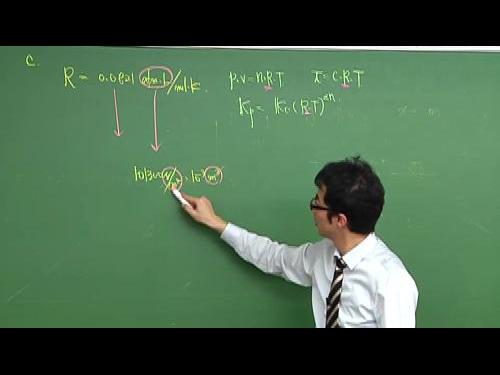 C.
R = 0.0821 atm·L/mol·K
P.V=n.R.T   π=C.R.T
Kp = Kc(R.T)^Δn
101300 N/m² · 10⁻³ m³